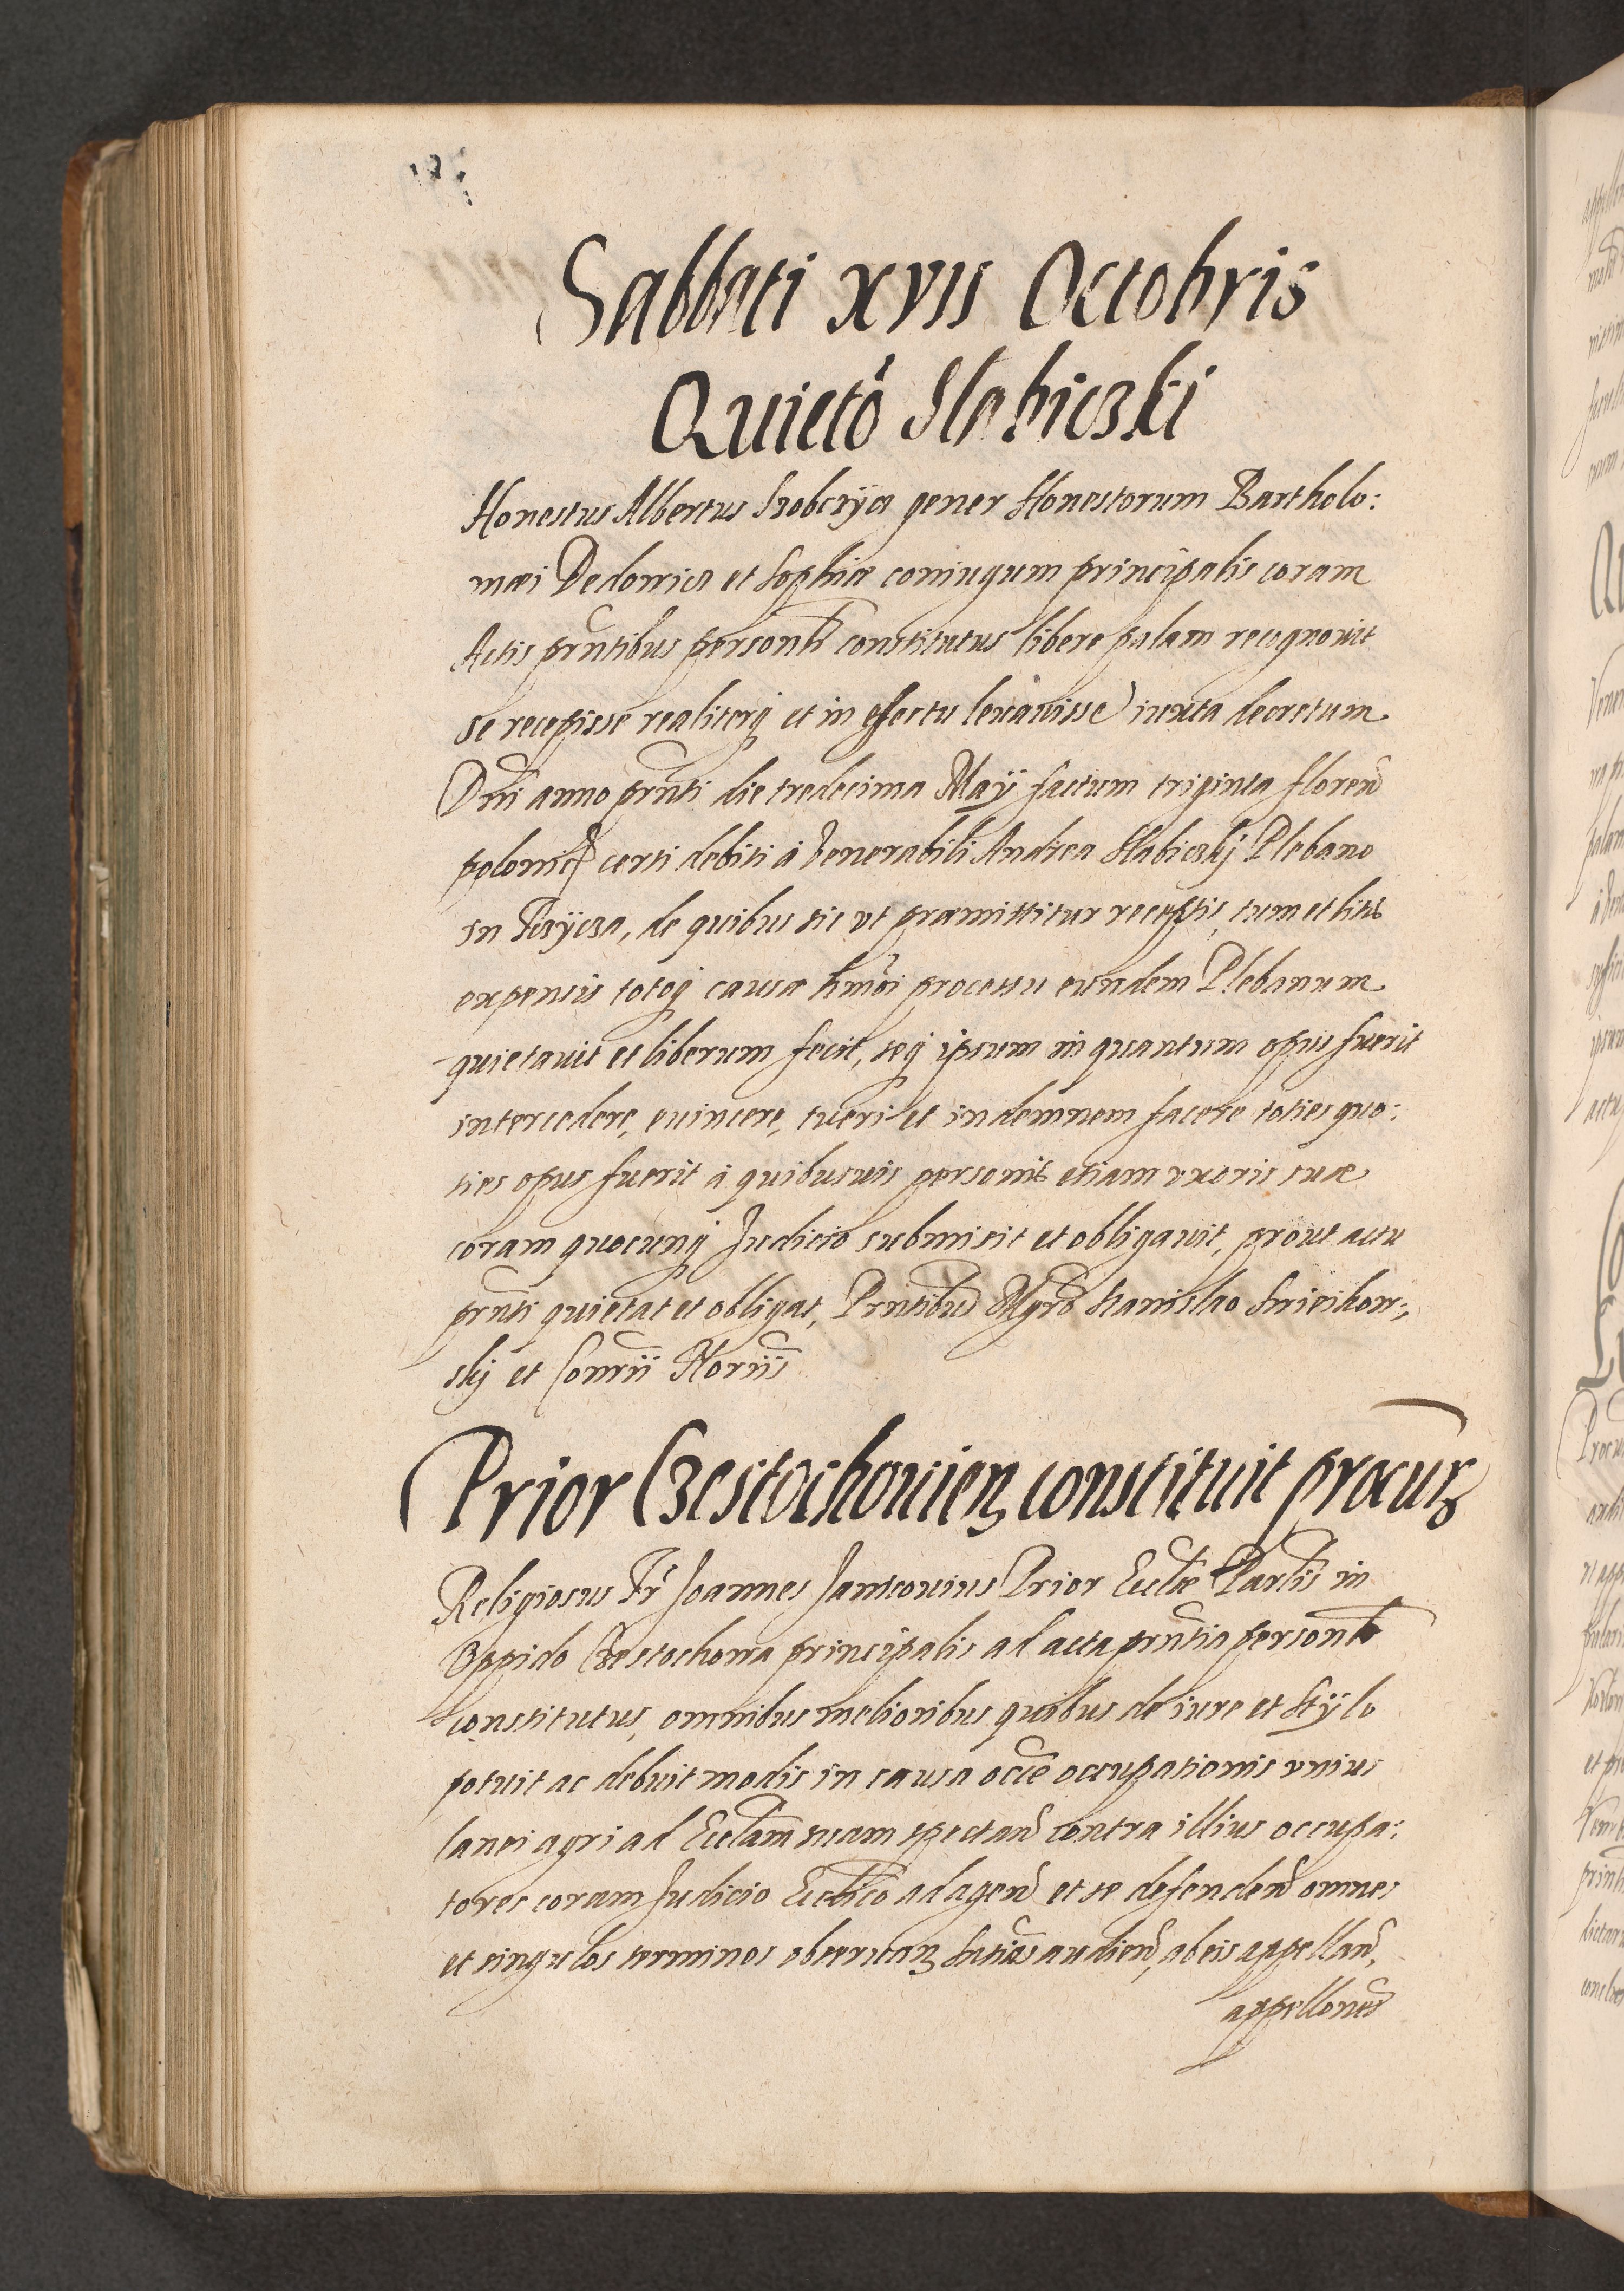 Sabbati xvii Octobris
Quietõ Slabiczki
Honestus Albertus Szobczÿcz gener Honestorum Bartholo:
mæi Dedowicz et Sophiæ coniugum principalis coram
Actis prñtibus personłr constitutus libere palam recognouit
se recepisse realiterq et in effectu leuauisse iuxta decretum
Dñi anno prñti die tredecima Maÿ factum triginta floreñ
polonic certi debiti à Venerabili Andrea Slabiczkÿ Plebano
in , de quibus sic vt præmittitur receptis, tum et litis
expensis totoq causæ hmõi processu eundem Plebanum
quietauit et liberum fecit, seq ipsum in quantum opus fuerit
intercedere, euincere, tueri et indemnem facere toties quo:
ties opus fuerit à quibusuis personis etiam vxoris suæ
coram quocunq Judicio submisit et obligauit, prout actu
prñti quietat et obligat, Prñtibus Mgrõ Stanislao
skÿ et Noriis
Prior Czestochouien constituit procur
Religiosus Fr Joannes Prior Eccłæ Parłis in
Oppido Czestochowa principalis ad acta prñtia personłr
constitutus, omnibus melioribus quibus de iure et stÿlo
potuit ac debuit modis in causa occe occupationis vnius
lanei agri ad Eccłam suam spectañ contra illius occupa:
tores coram Judicio Eccłico ad ageñ et se defendeñ omnes
et singulos terminos obseruan snias audieñ, ab eis appellañ,
appellones